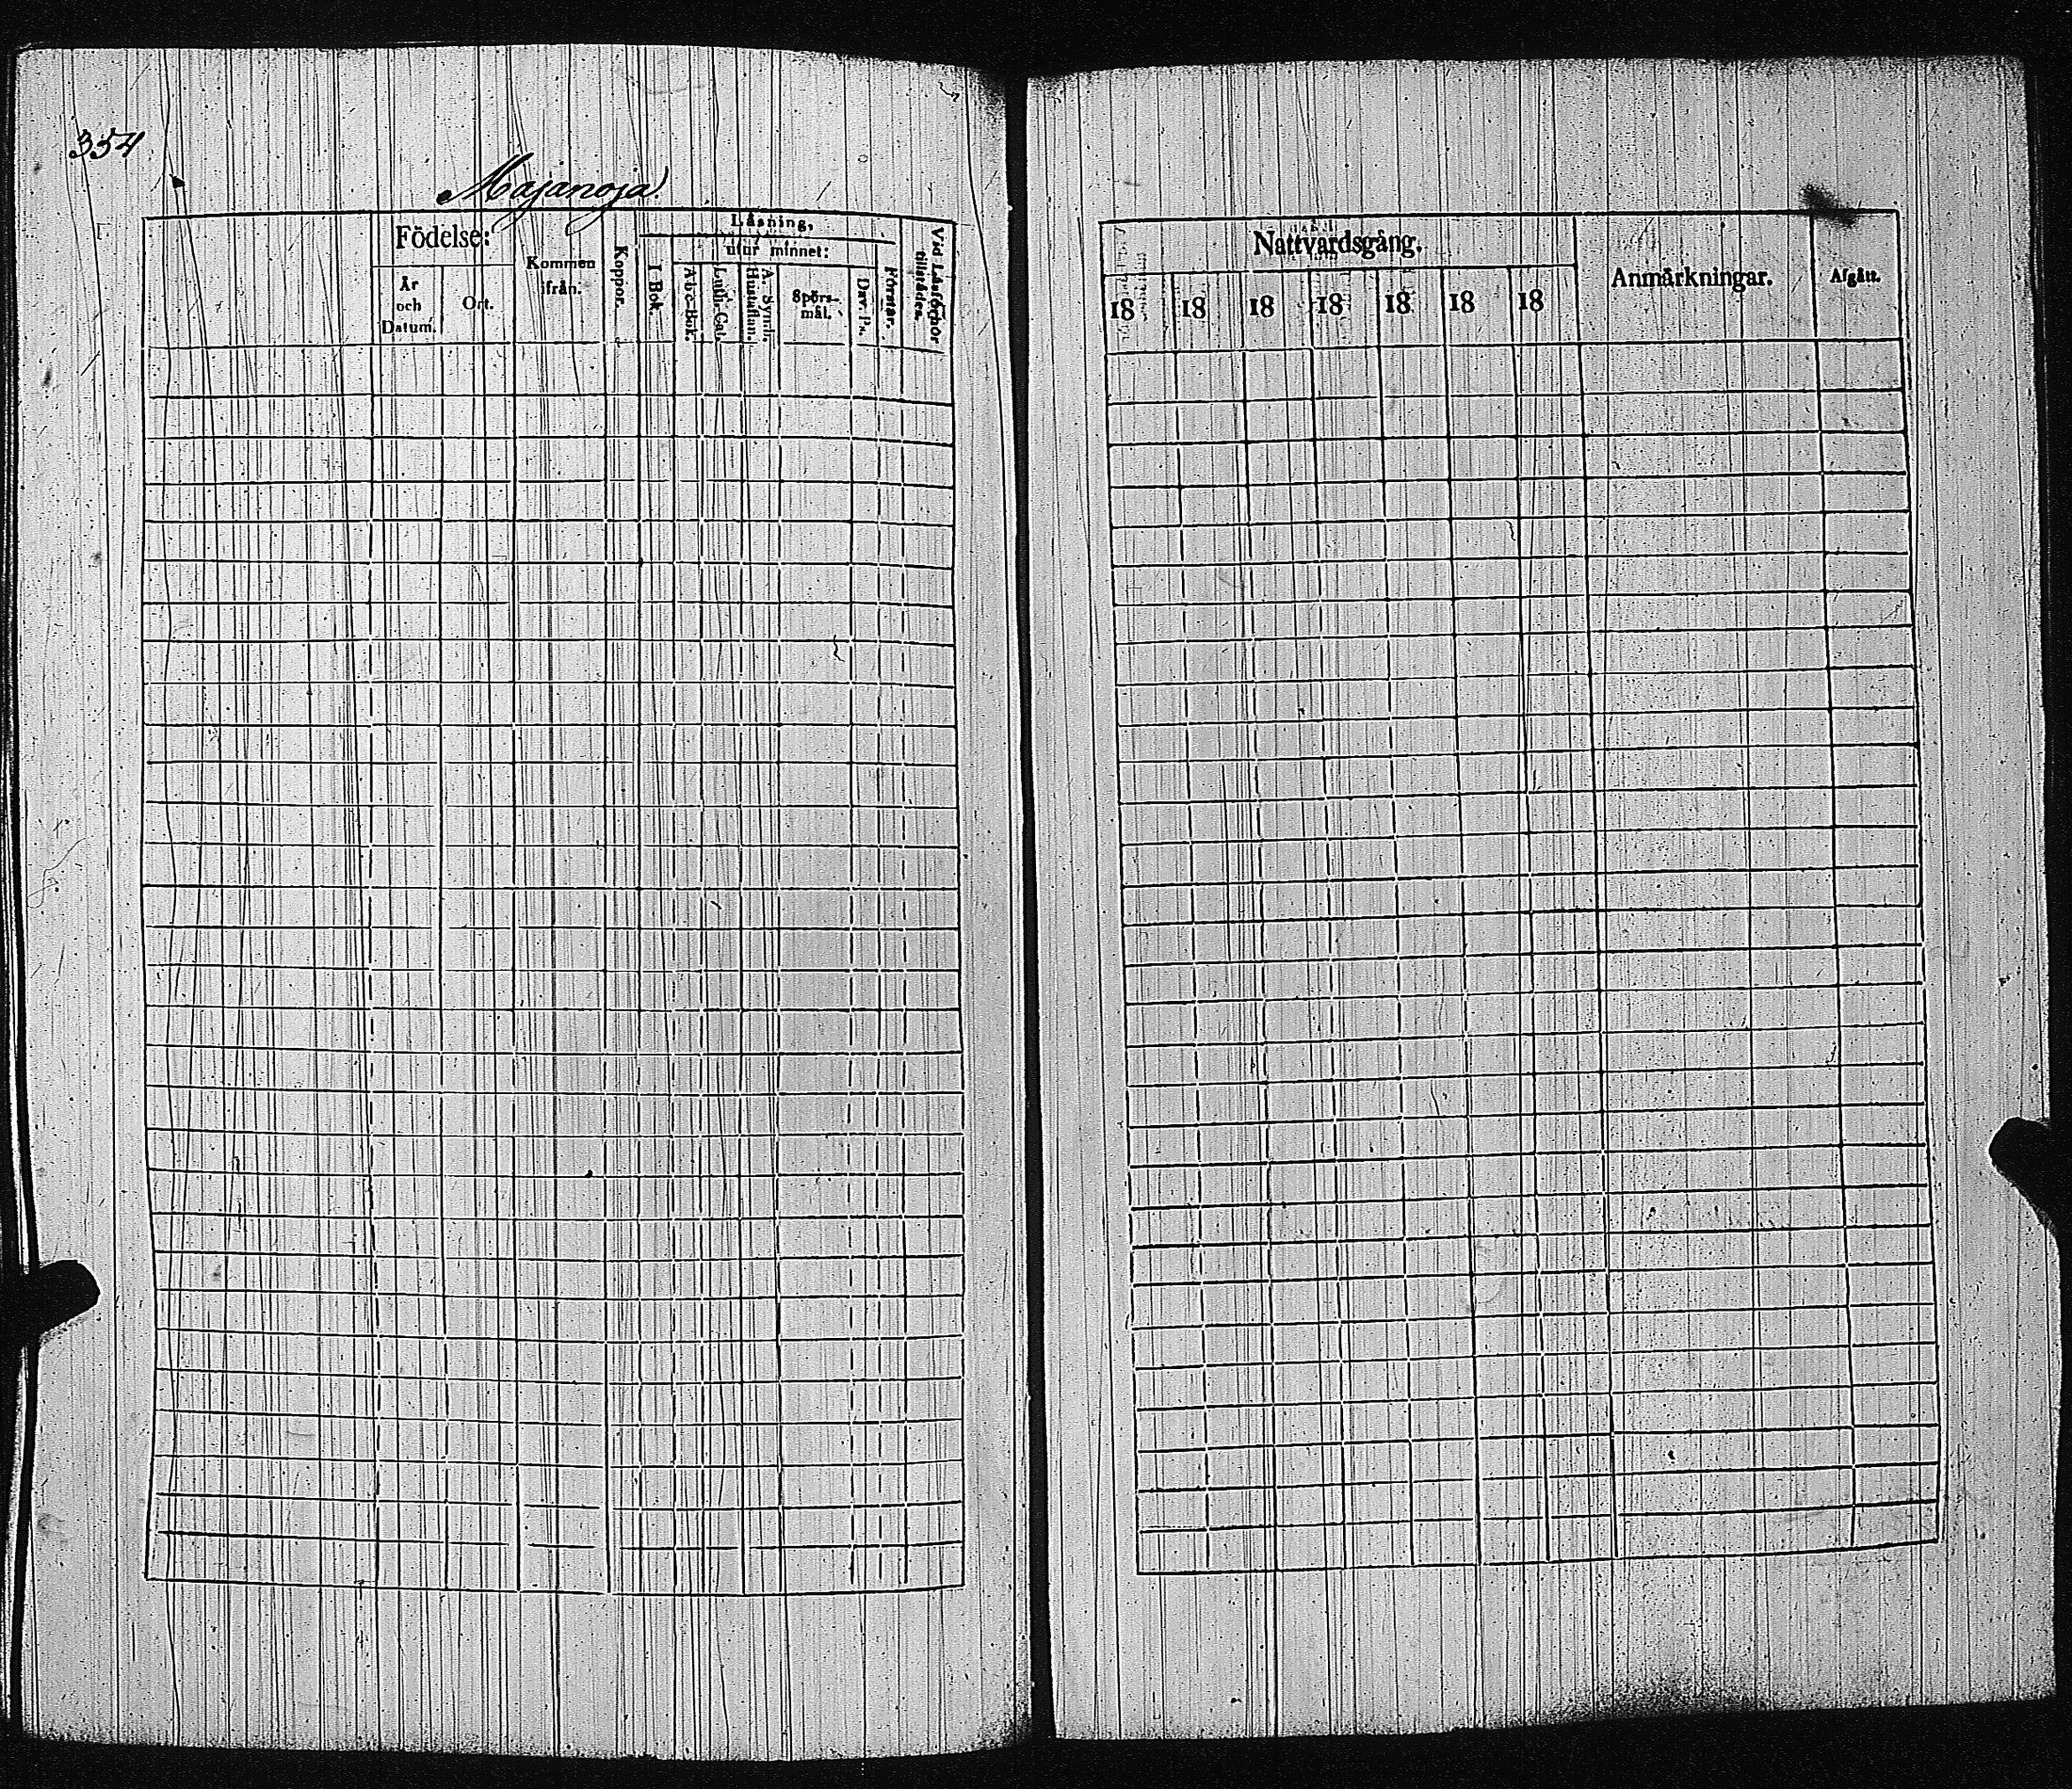 354
Majanoja
Födelse:
År
och
Datum.
Ort.
Kommen
ifrån.
Koppor.
Läsning,
utur minnet:
I Bok.
A b c-Bok.
Luth. Cat.
Hustaflan.
A. Symb.
Spörs-
mål.
Dav. Ps.
Förstår.
Vid Läsförhör
tillstädes.
Nattvardsgång.
18 18 18 18 18 18 18
Anmärkningar.
Afgått.